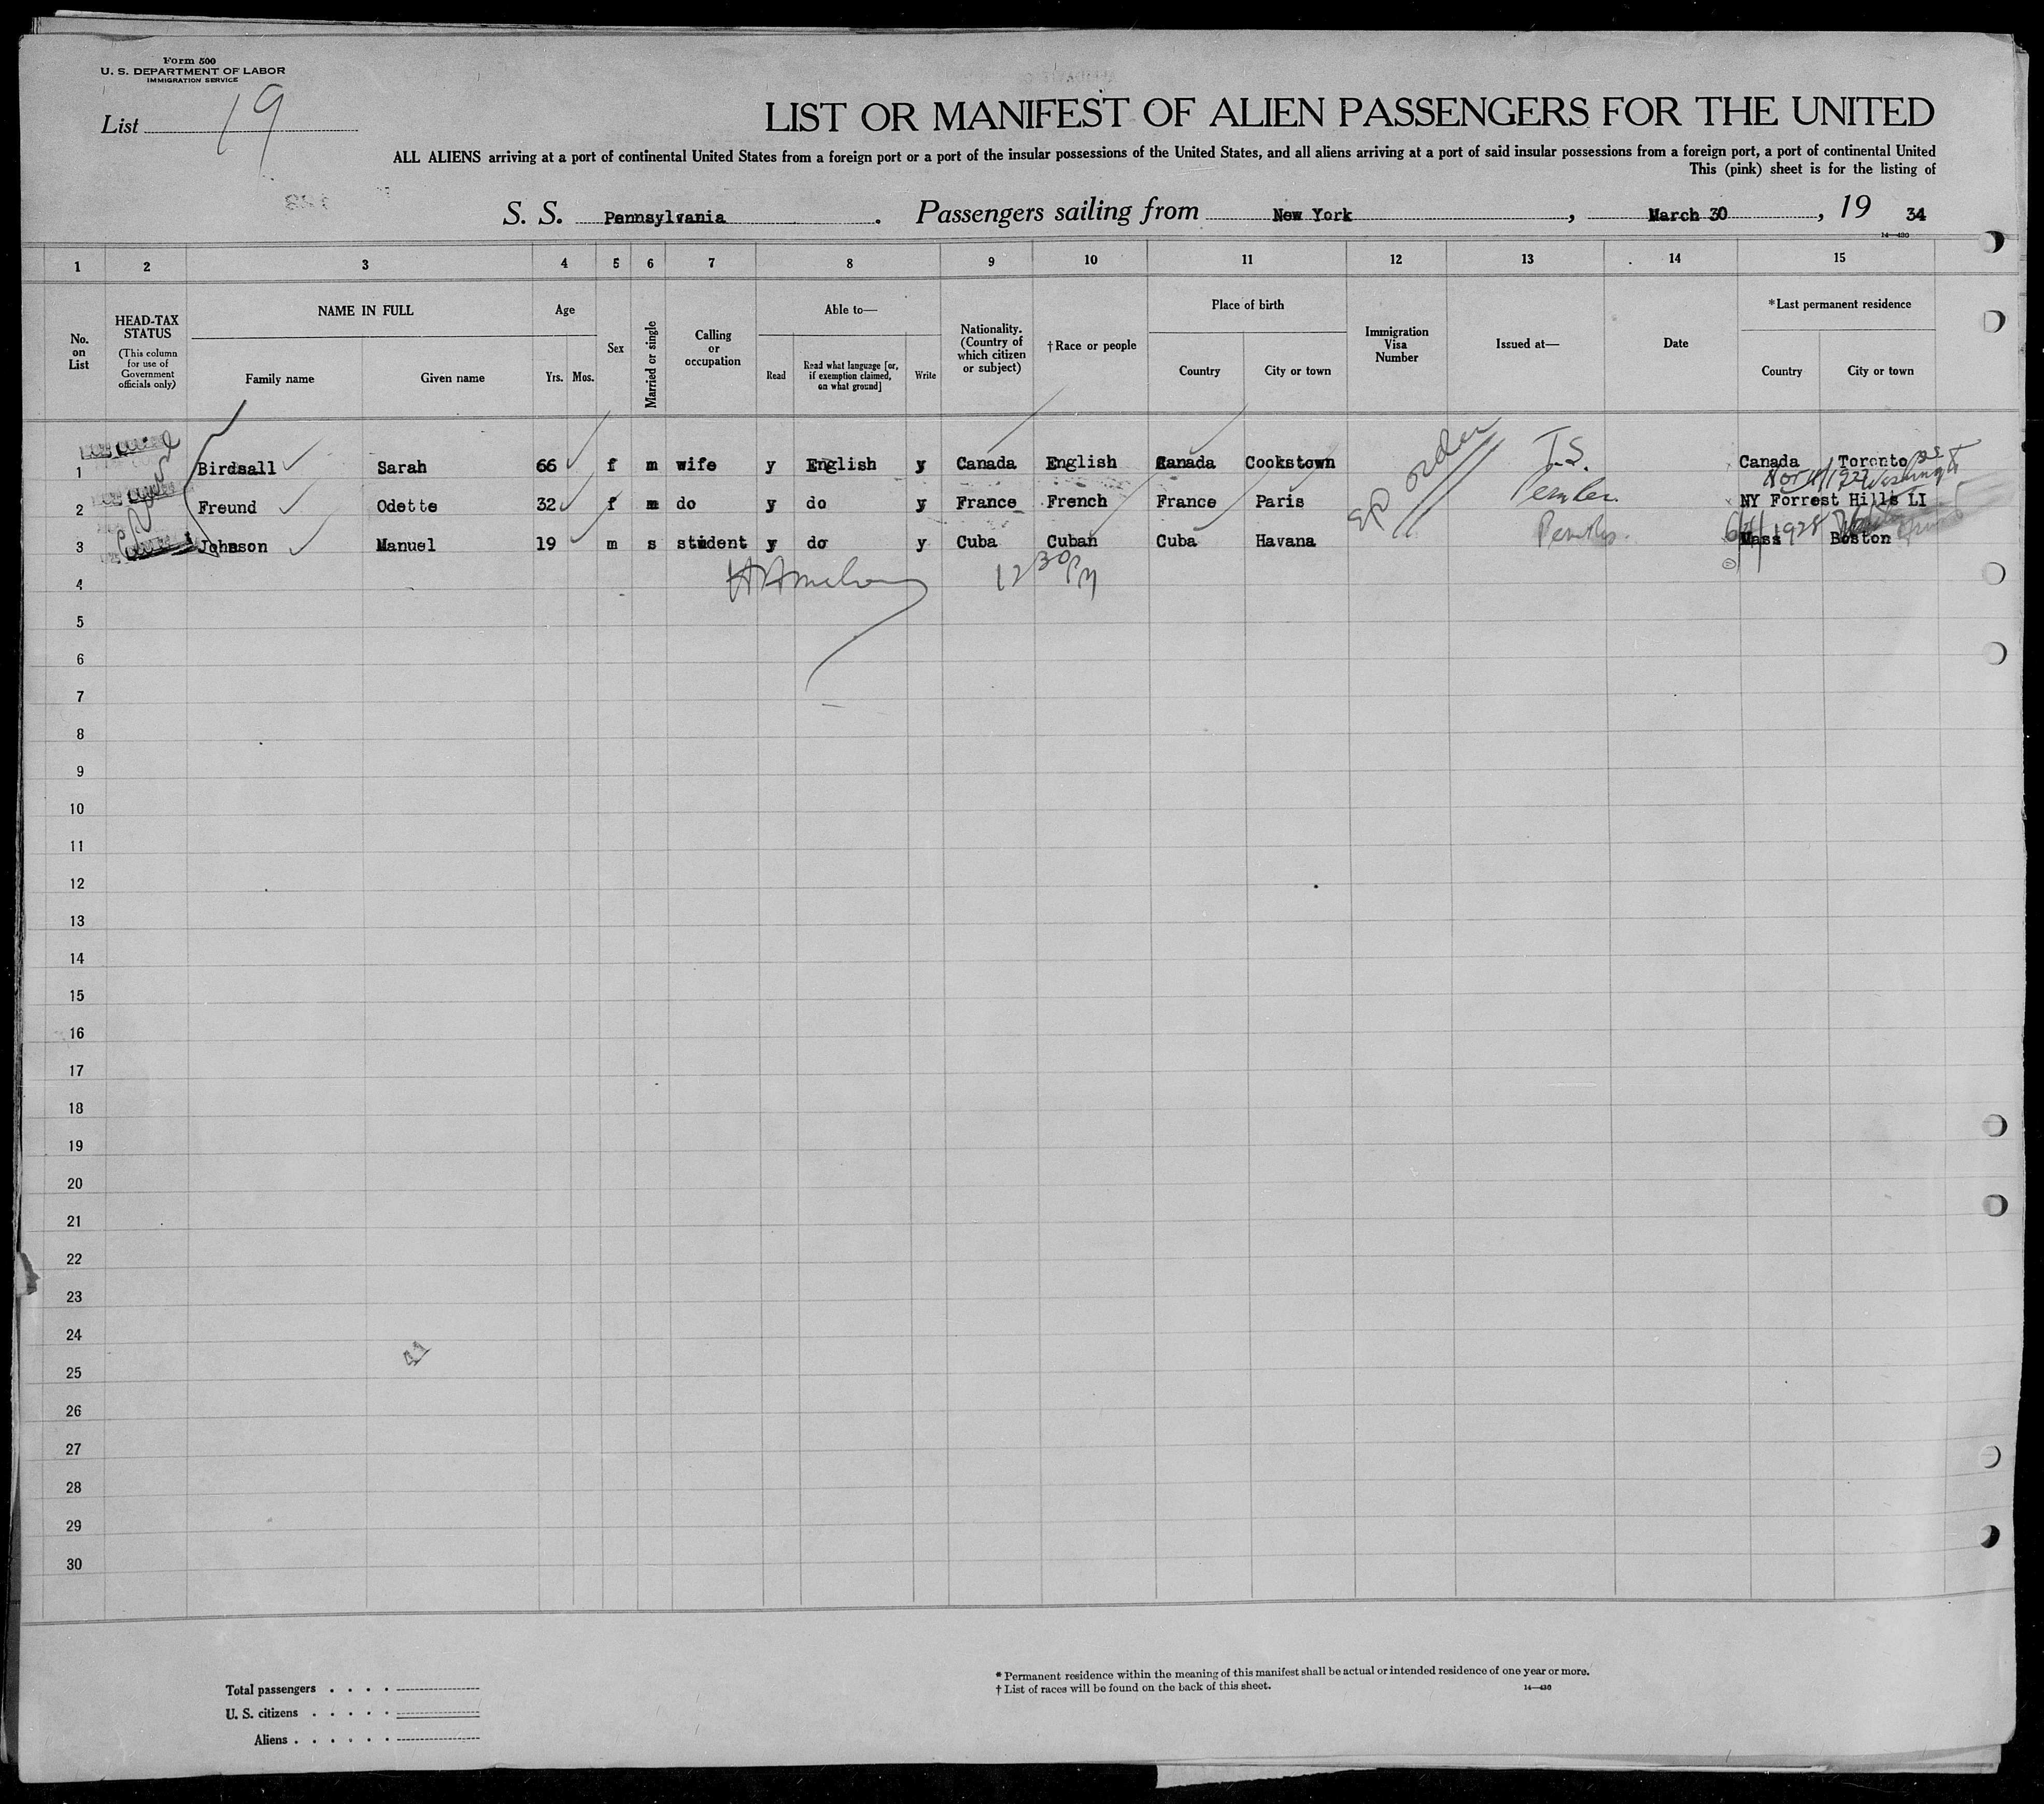 Form 500
U. S. DEPARTMENT OF LABOR
IMMIGRATION SERVICE
List 19
LIST OR MANIFEST OF ALIEN PASSENGERS FOR THE UNITED
ALL ALIENS arriving at a port of continental United States from a foreign port or a port of the insular possessions of the United States, and all aliens arriving at a port of said insular possessions from a foreign port, a port of continental United
This (pink) sheet is for the listing of
S. S. Pennsylvania. Passengers sailing from New York, March 30, 19 34
14—430
1 2 3 4 5 6 7 8 9 10 11 12 13 14 15
No. on List
HEAD-TAX STATUS
(This column for use of Government officials only)
NAME IN FULL
Family name Given name
Age
Yrs. Mos.
Sex
Married or single
Calling or occupation
Able to—
Read
Read what language [or, if exemption claimed, on what ground]
Write
Nationality. (Country of which citizen or subject)
†Race or people
Place of birth
Country City or town
Immigration Visa Number
Issued at—
Date
*Last permanent residence
Country City or town
1 Birdsall Sarah 66 f m wife y English y Canada English Canada Cookstown Canada Toronto
2 Freund Odette 32 f m do y do y France French France Paris NY Forrest Hills LI
3 Johnson Manuel 19 m s student y do y Cuba Cuban Cuba Havana Mass Boston
order
1928
12 30 PM
4
5
6
7
8
9
10
11
12
13
14
15
16
17
18
19
20
21
22
23
24
25
26
27
28
29
30
41
Total passengers
U. S. citizens
Aliens
* Permanent residence within the meaning of this manifest shall be actual or intended residence of one year or more.
† List of races will be found on the back of this sheet.
14—430